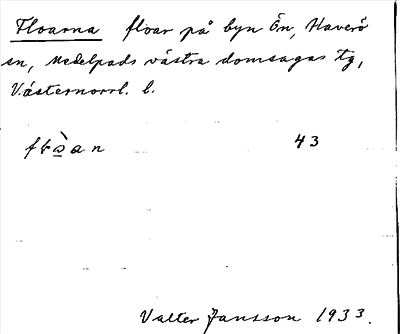 Floarna floar på byn Ön, Haverö
sn, Medelpads västra domsagas tg,
Västernorrl. l.
43
Valter Jansson 1933.